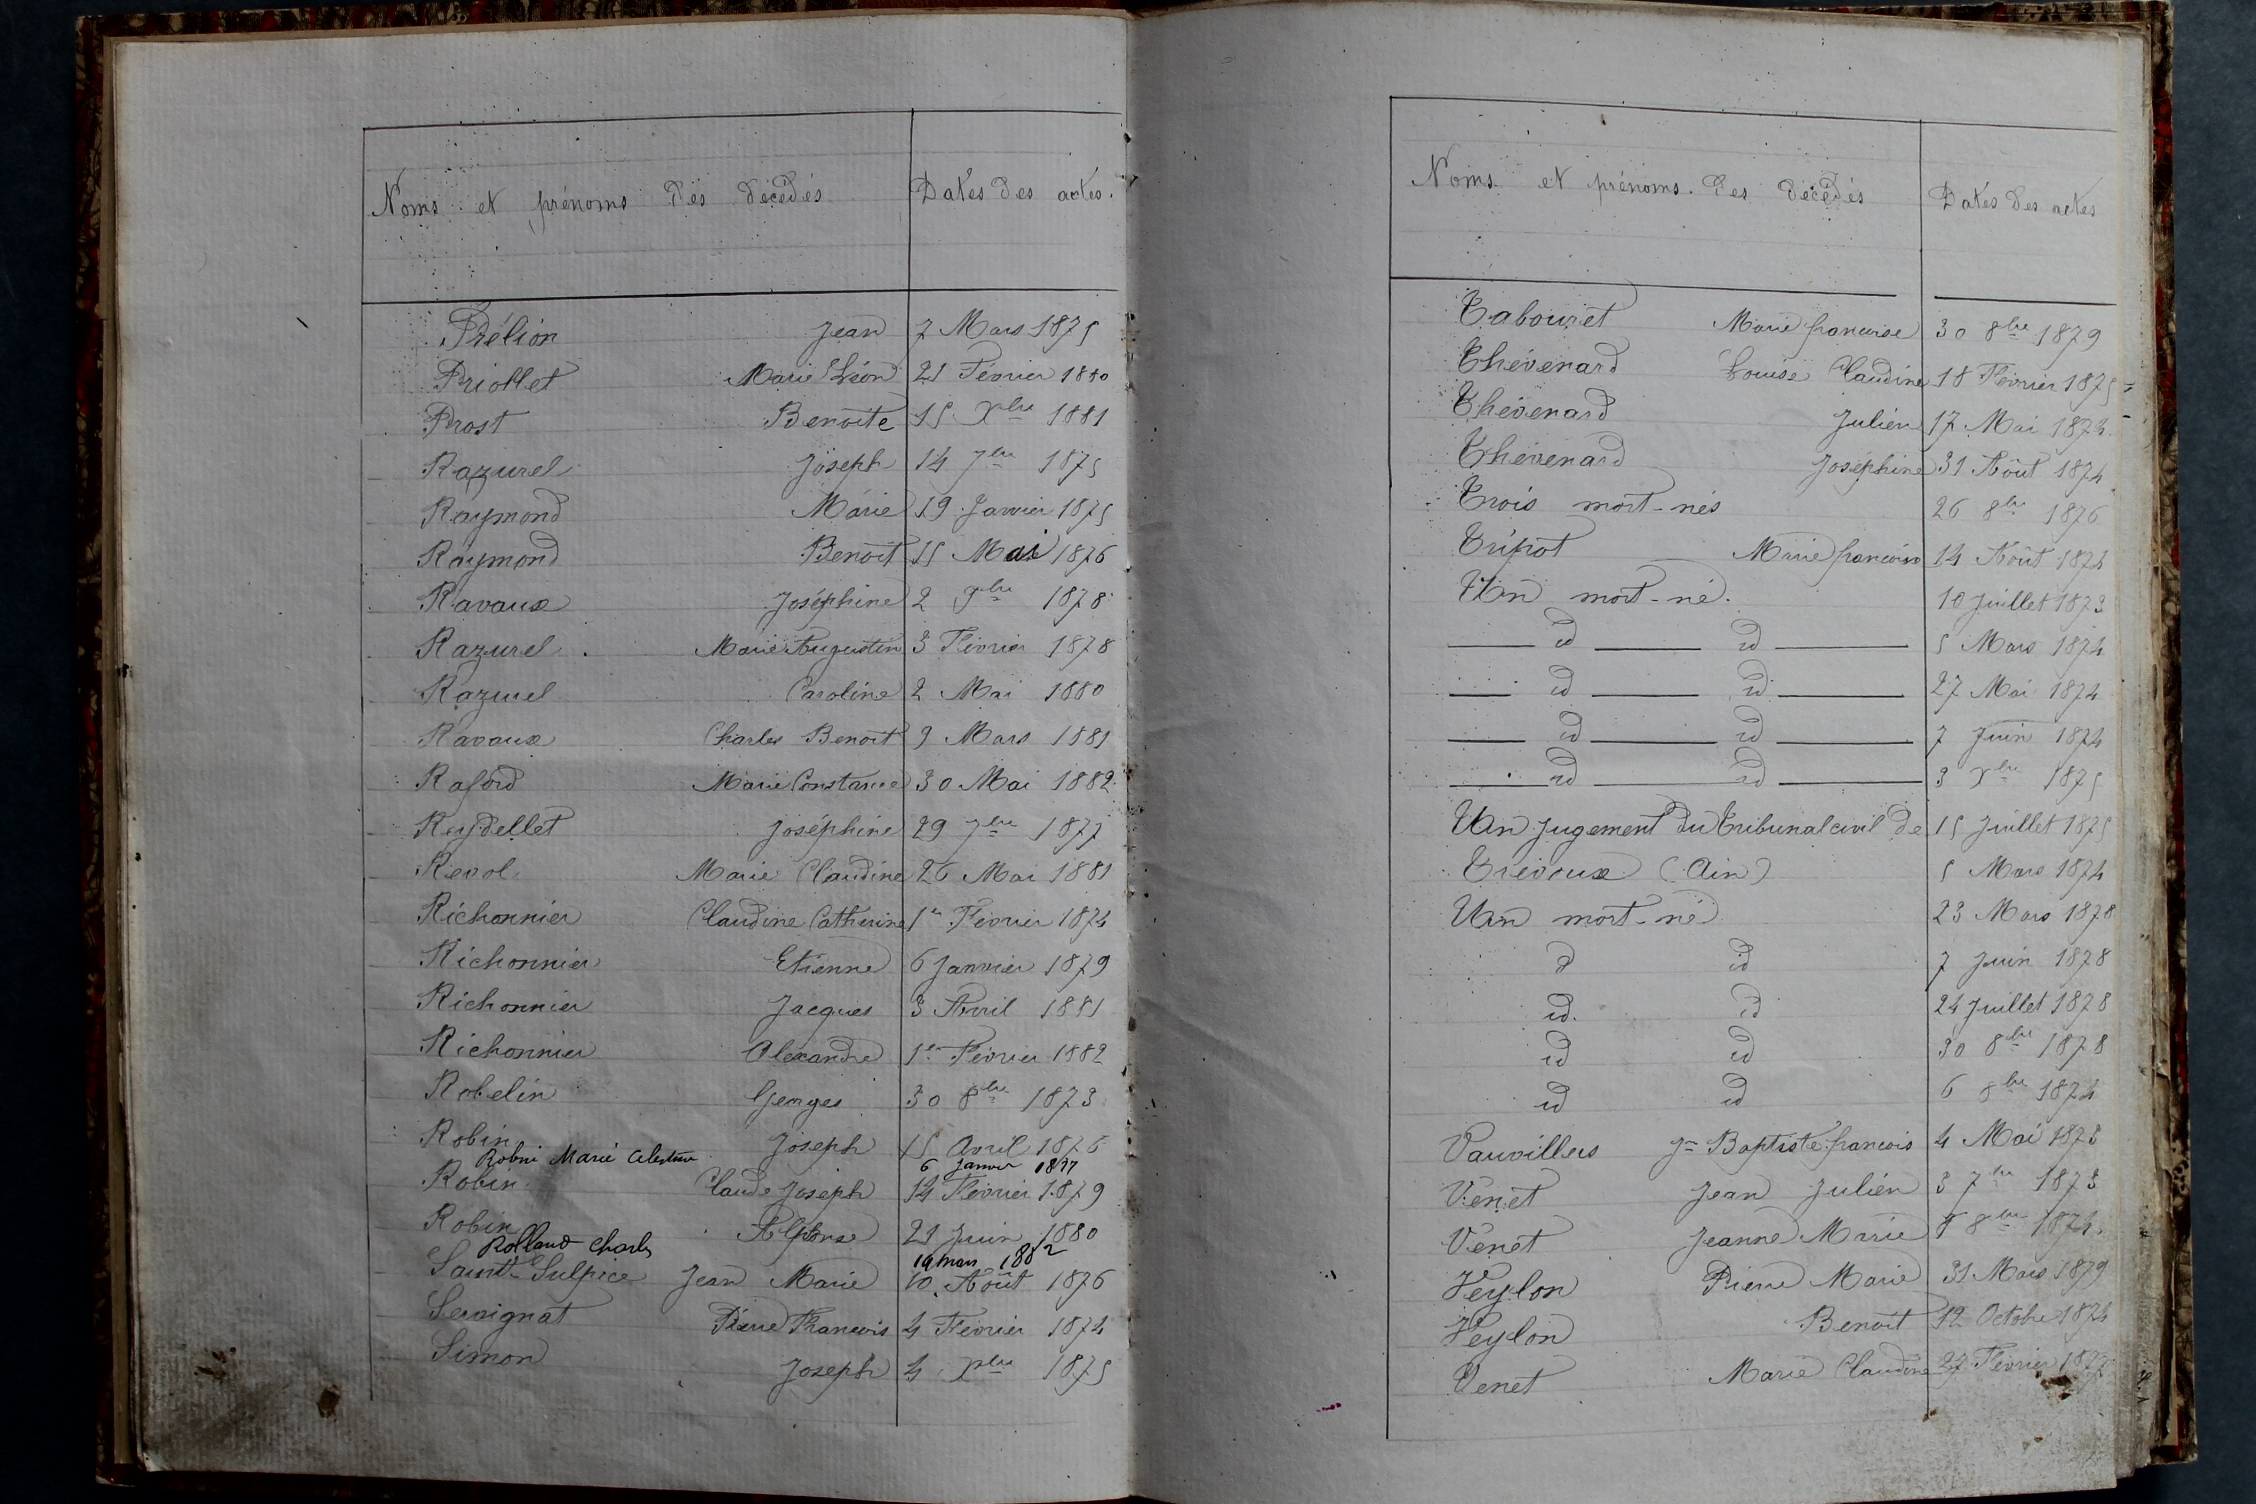 Noms et prénoms des décédés Dates des actes.
Prélion Jean 7 Mars 1875
Priollet Marie Léon 21 Février 1880
Prost Benoite 15 Xbre 1881
Razurel Joseph 14 7bre 1875
Raymond Marie 19 Janvier 1875
Raymond Benoit 15 Mai 1876
Ravaux Joséphine 2 9bre 1878
Razurel Marie Augustin 3 Février 1878
Razurel Caroline 2 Mai 1880
Ravaux Charles Benoit 9 Mars 1881
Raford Marie Constance 30 Mai 1882
Reydellet Joséphine 29 7bre 1877
Revol Marie Claudine 26 Mai 1881
Richonnier Claudine Catherine 1er Février 1874
Richonnier Etienne 6 Janvier 1879
Richonnier Jacques 3 Avril 1881
Richonnier Alexandre 1er Février 1882
Robelin Georges 30 8bre 1873
Robin Joseph 15 Avril 1876
Robin Marie Celestine 6 Janvier 1877
Robin Claude Joseph 14 Février 1879
Robin Alphonse 21 Juin 1880
Rolland Charles 19 mars 1882
Saint-Sulpice Jean Marie 10 Août 1876
Servignat Pierre François 4 Février 1874
Simon Joseph 4 Xbre 1875
Noms et prénoms des décédés Dates des actes
Tabouret Marie françoise 30 8bre 1879
Thévenard Louise Claudine 18 Février 1875
Thévenard Julien 17 Mai 1874
Thévenard Joséphine 31 Août 1874
Trois mort-nés 26 8bre 1876
Tripot Marie françoise 14 Août 1874
Un mort-né. 10 Juillet 1873
id id 5 Mars 1874
id id 27 Mai 1874
id id 7 Juin 1874
id id 3 Xbre 1875
Un jugement du Tribunal civil de 15 Juillet 1875
Trévoux (Ain) 5 Mars 1874
Un mort-né 23 Mars 1878
id id 7 Juin 1878
id. id 24 Juillet 1878
id id 30 8bre 1878
id id 6 8bre 1874
Vauvillers Jn Baptiste françois 4 Mai 1873
Venet Jean Julien 3 7bre 1873
Venet Jeanne Marie 8bre 1874
Veylon Pierre Marie 31 Mars 1879
Veylon Benoit 12 Octobre 1874
Venet Marie Claudine 27 Février 1877